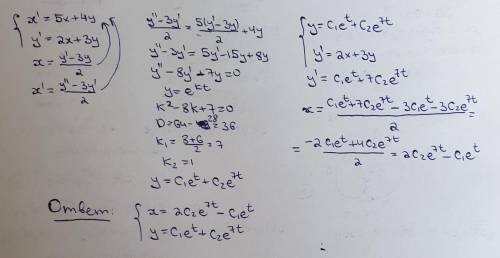 x' = 5x + 4y
y' = 2x + 3y
x = (y' - 3y)/2
x' = (y'' - 3y')/2
(y'' - 3y')/2 = 5(y' - 3y)/2 + 4y
y'' - 3y' = 5y' - 15y + 8y
y'' - 8y' + 7y = 0
y = e^(kt)
k² - 8k + 7 = 0
D = 64 - 28 = 36
k₁ = (8+6)/2 = 7
k₂ = 1
y = C₁e^t + C₂e^(7t)
y = C₁e^t + C₂e^(7t)
y' = 2x + 3y
y' = C₁e^t + 7C₂e^(7t)
x = (C₁e^t + 7C₂e^(7t) - 3C₁e^t - 3C₂e^(7t))/2 =
= (-2C₁e^t + 4C₂e^(7t))/2 = 2C₂e^(7t) - C₁e^t
Ответ:
x = 2C₂e^(7t) - C₁e^t
y = C₁e^t + C₂e^(7t)